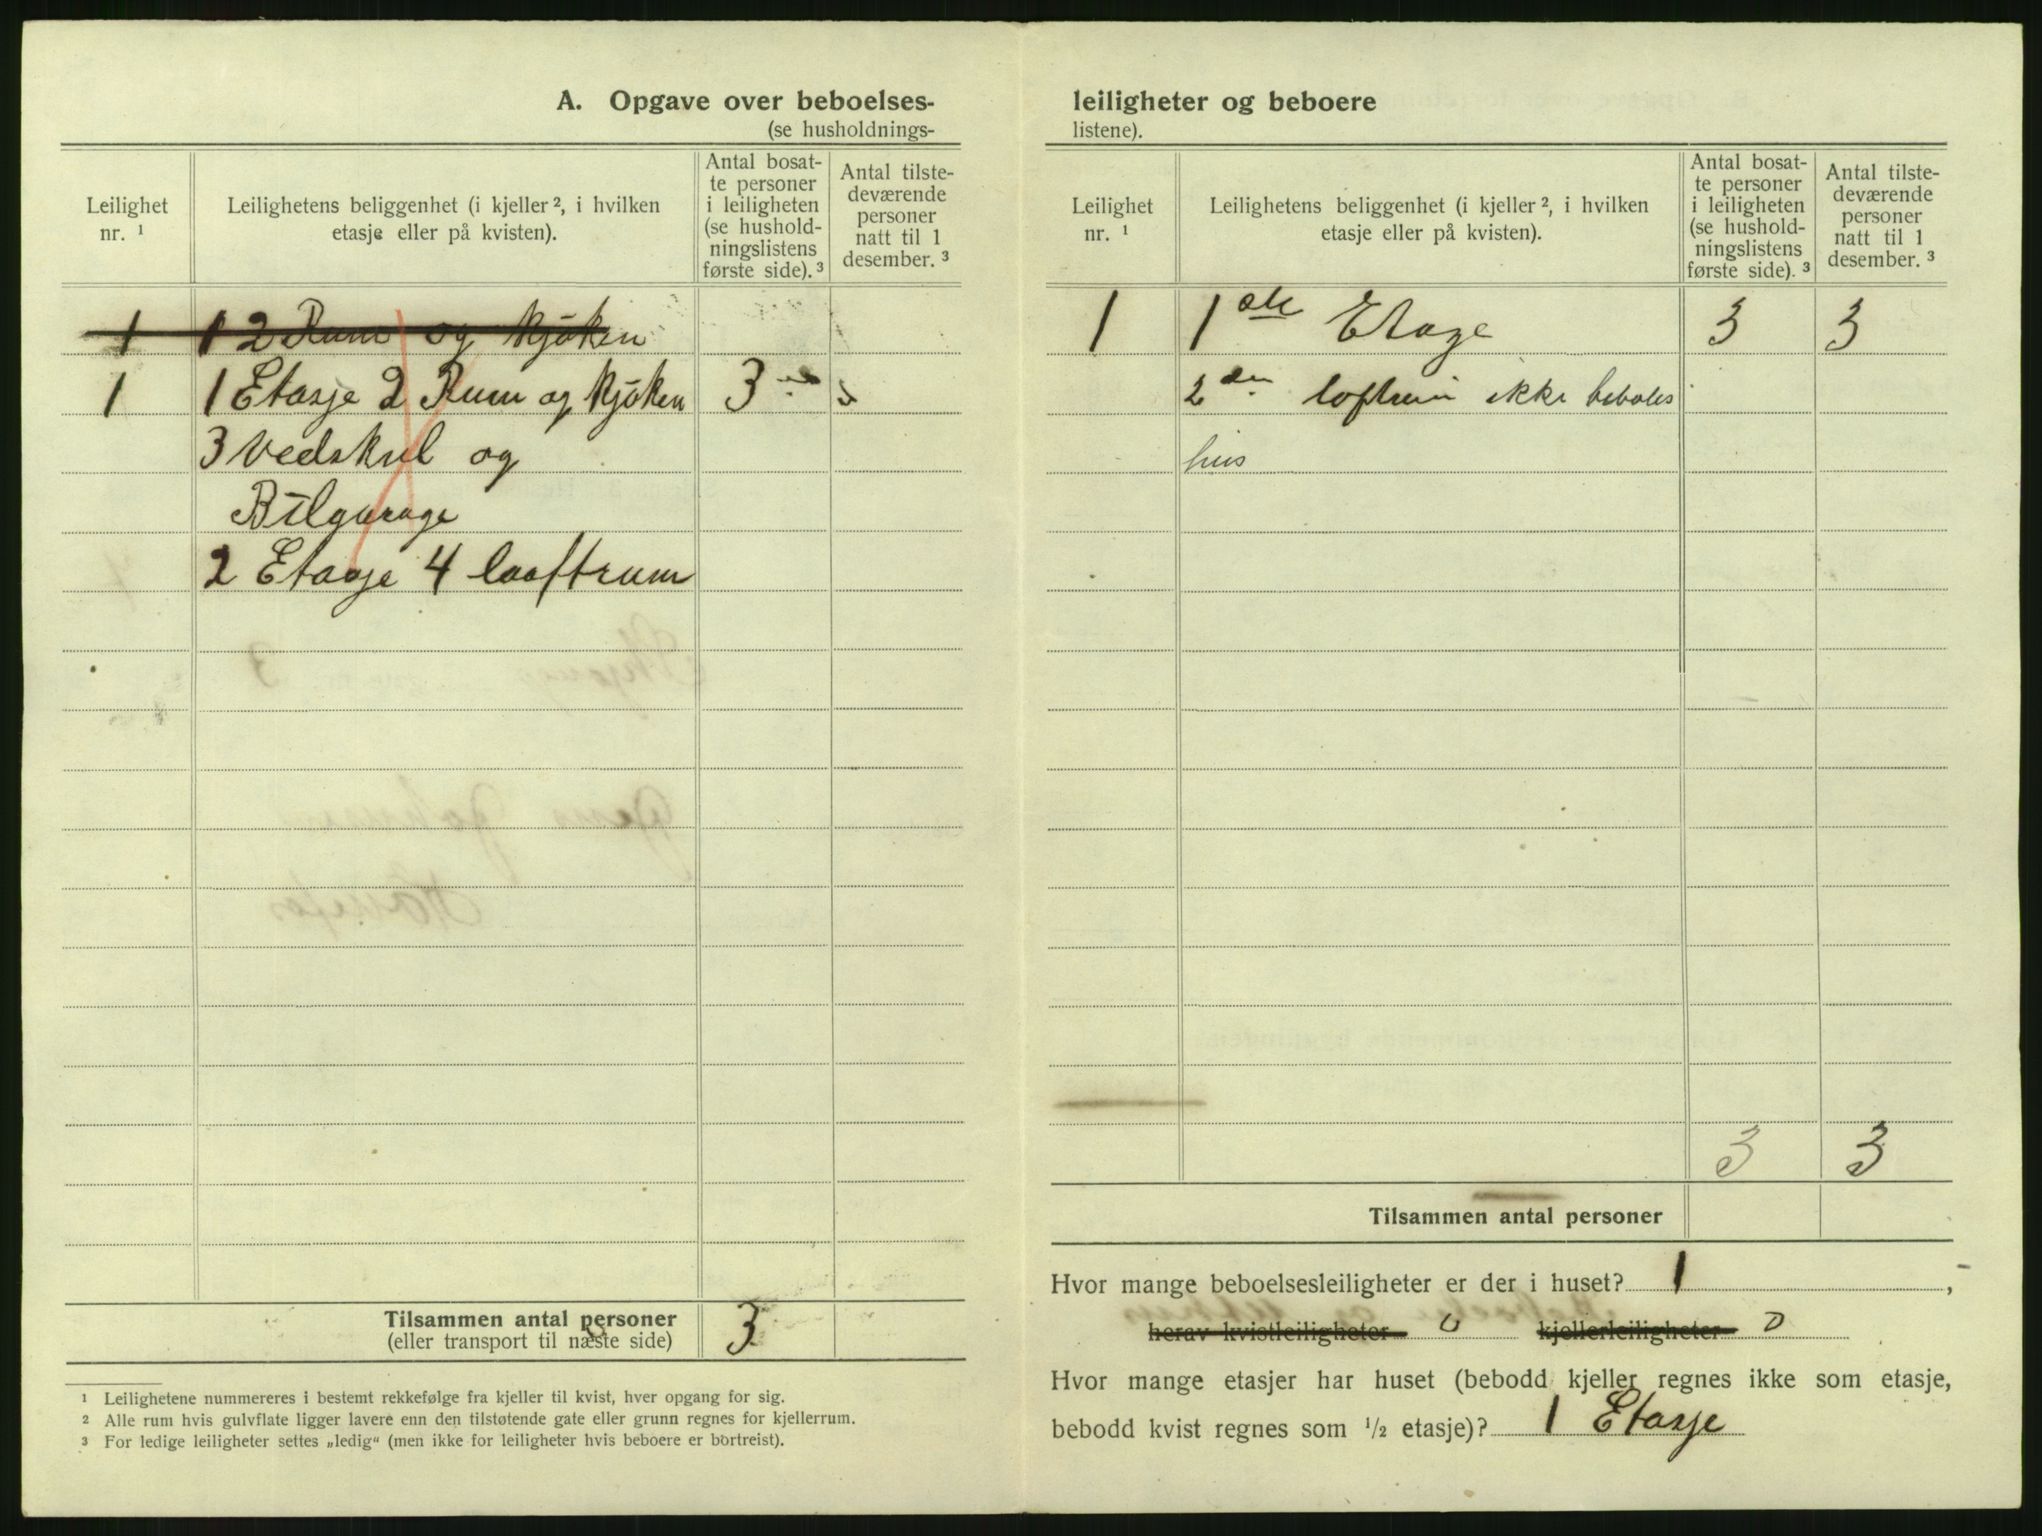 A. Opgave over beboelses-
(se husholdnings-
Leilighet
nr. ¹
Leilighetens beliggenhet (i kjeller ², i hvilken
etasje eller på kvisten).
Antal bosat-
te personer
i leiligheten
(se hushold-
ningslistens
første side). ³
Antal tilste-
deværende
personer
natt til 1
desember. ³
1 1 2 Rum og Kjøken
1 1 Etasje 2 Rum og Kjøken 3
3 Vedskul og
Bilgarage
2 Etasje 4 looftrum
Tilsammen antal personer
(eller transport til næste side)
3
¹ Leilighetene nummereres i bestemt rekkefølge fra kjeller til kvist, hver opgang for sig.
² Alle rum hvis gulvflate ligger lavere enn den tilstøtende gate eller grunn regnes for kjellerrum.
³ For ledige leiligheter settes „ledig“ (men ikke for leiligheter hvis beboere er bortreist).
leiligheter og beboere
listene).
Leilighet
nr. ¹
Leilighetens beliggenhet (i kjeller ², i hvilken
etasje eller på kvisten).
Antal bosat-
te personer
i leiligheten
(se hushold-
ningslistens
første side). ³
Antal tilste-
deværende
personer
natt til 1
desember. ³
1 1 ste Etage 3 3
2 den ikke beboles
hus
3 3
Tilsammen antal personer
Hvor mange beboelsesleiligheter er der i huset? 1 ,
herav kvistleiligheter 0 kjellerleiligheter 0
Hvor mange etasjer har huset (bebodd kjeller regnes ikke som etasje,
bebodd kvist regnes som ½ etasje)? 1 Etasje